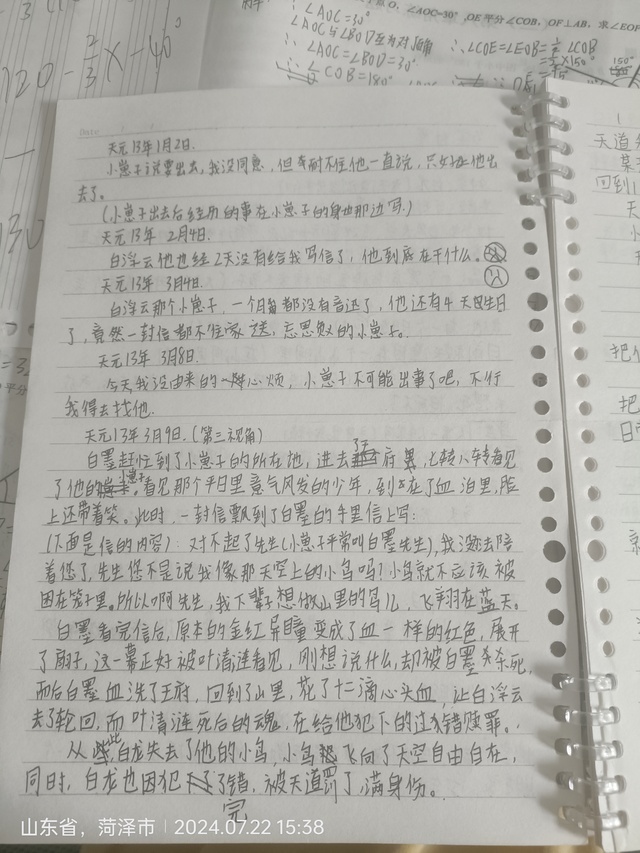 ∠AOC=30°
∠AOC与∠BOD互为对顶角
∠AOC=∠BOD=30°
∠COB=180°
∴∠COE=∠EOB=½∠COB
120-⅔x-40°
Date
天元13年1月2日.
小崽子说要出去,我没同意,但我耐不住他一直说,只好让他出
去了。
(小崽子出去后经历的事在小崽子的身世那边写.)
天元13年 2月4日.
白浮云他也经2天没有给我写信了,他到底在干什么。
天元13年 3月4日.
白浮云那个小崽子,一个月都没有音迅了,他还有4天过生日
了,竟然一封信都不往家送,忘恩负的小崽子。
天元13年 3月8日.
今天我没由来的一阵心烦,小崽子不可能出事了吧,不行
我得去找他.
天元13年3月9日.(第三视角)
白墨赶忙到了小崽子的所在地,进去了王府里,七转八转看见
了他的小崽子.看见那个平日里意气风发的少年,到在了血泊里,脸
上还带着笑。此时,一封信飘到了白墨的手里信上写:
(下面是信的内容):对不起了先生(小崽子平常叫白墨先生),我没法去陪
着您了,先生您不是说我像那天空上的小鸟吗?小鸟就不应该被
困在笼子里。所以啊先生,我下辈子想做山里的鸟儿,飞翔在蓝天。
白墨看完信后,原本的金红异瞳变成了血一样的红色,展开
了扇子,这一幕正好被叶清涟看见,刚想说什么,却被白墨杀杀死,
而后白墨血洗了王府,回到了山里,花了十二滴心头血,让白浮云
去了轮回,而叶清涟死后的魂,在给他犯下的过错赎罪。
从此白龙失去了他的小鸟,小鸟飞向了天空自由自在,
同时,白龙也因犯了错,被天道罚了,满身伤。
完
天道
回到
把
把
日
山东省,菏泽市 | 2024.07.22 15:38